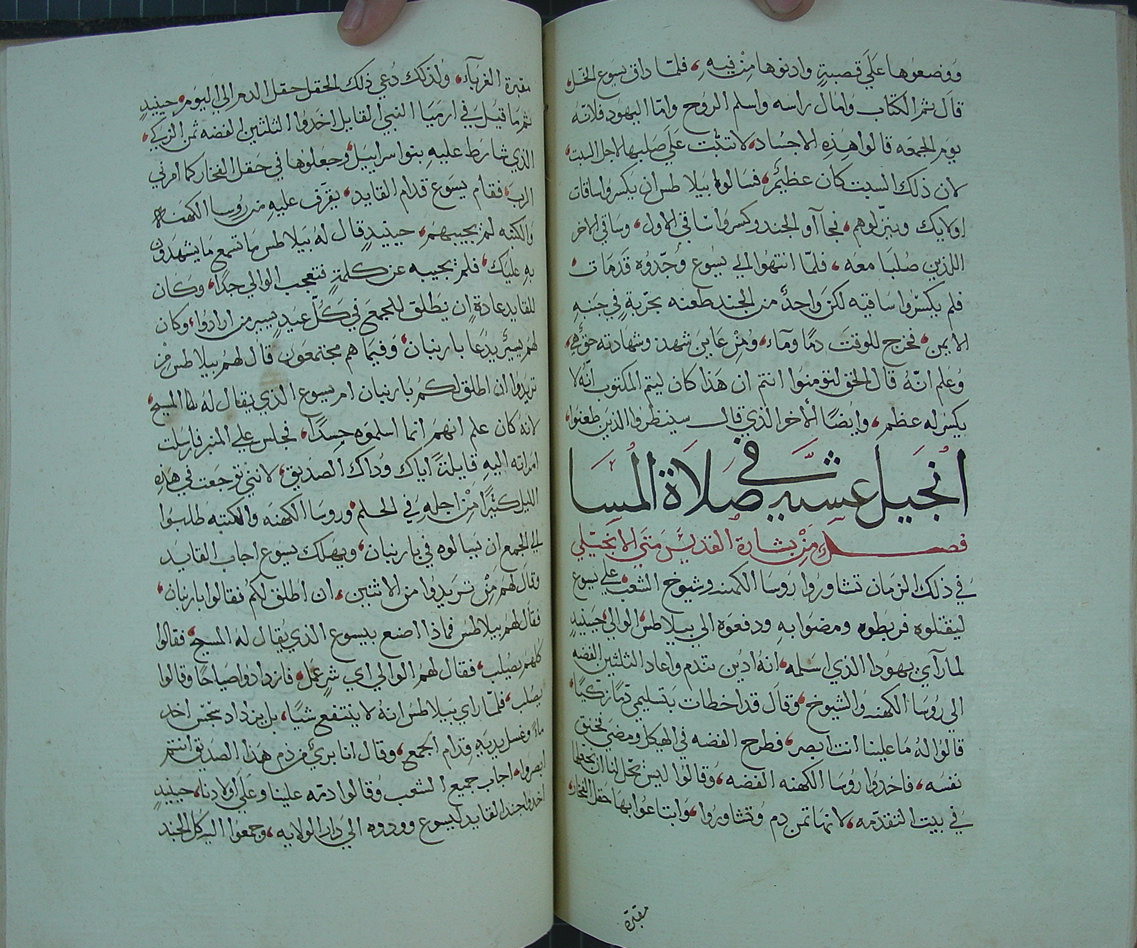 ووضعوها علي قصبةٍ وادنوها من فيهِ، فلمّا داق يسوع الخل
قال تمر الكتاب وامال راسه واسلم الروح وامّا اليهود فلانّه
يوم الجمعه قالوا هذِهِ الاجساد لا تثبت علي صلبها لاجل السبت
لان ذلك السبت كان عظيمٌ، فسالوا بيلاطس ان يكسروا ساقات
اولايك وينزلوهم، فجآ آو الجند وكسروا ساقي الاول، وساقي الاخر
اللذين صلبا معه، فلمّا انتهوا الي يسوع وجدوه قد مات
فلم يكسروا ساقيه لكن واحدٌ من الجند طعنه بحربةٍ في جنبهِ
الايمن، فخرج للوقت دمًا ومآء، ومن عاين شهد وشهادته حق هي
وعلم انّهُ قال الحق لتومنوا انتم ان هذا كان ليتم المكتوب انّه لا
يكسر له عظم، وايضًا الاخر الذي قال سينظروا الذين طعنوا
انجيل عشية في صلاة المسا
فصل من بشارة القديس متي الانجيلي
في ذلك الزمان تشاوروا روسا الكهنه وشيوخ الشعب علي يسوع
ليقتلوه فربطوه ومضوا بهِ ودفعوه الي بيلاطس الوالي، حينيدٍ
لما رآي يهودا الذي اسلمه، انهُ ادين تندم واعاد الثلثين الفضه
الي روسا الكهنه والشيوخ، وقال قد اخطات بتسليمي دمًا زكيًا،
قالوا لهُ ما علينا انت ابصر، فطرح الفضه في الهيكل ومضي فخنق
نفسه، فاخدوا روسا الكهنه الفضه، وقالوا ليس يحل لنا ان نجعلها
في بيت التقدمه، لانها ثمن دم وتشاوروا، وابتاعوا بها حقل الفخار
مقبرة
مقبرة الغربآء، ولذلك دُعي ذلك الحقل حقل الدم الي اليوم، حينيدٍ
تم ما قيل في ارميا النبي القايل اخدوا الثلثين الفضه ثمن الزكي،
الذي شارط عليهِ بنوا سراييل وجعلوها في حقل الفخار كما امرني
الرب، فقام يسوع قدام القايد، يقرف عليهِ من روسا الكهنه
والكتبه لم يجيبهم، حينيدٍ قال لهُ بيلاطس ما تسمع ما يشهدون
بهِ عليك، فلم يجيبه عن كلمةٍ فتعجب الوالي جدًا، وكان
للقايد عادةٍ ان يطلق للجمع في كل عيد يسير من ارادوا، وكان
لهم يسيرٌ يدعا باربنان، وفيما هم مجتمعون قال لهم بيلاطس من
تريدوا ان اطلق لكم باربنان ام يسوع الذي يقال له المسيح،
لانهُ كان علم انهم انما اسلموه حسدًا، فجلس علي المنبر فارسلت
امراته اليهِ قايلةً اياك وذاك الصديق، لانني توجعت في هذِهِ
الليل كثيرًا من اجلهِ في الحلم، وروسا الكهنه والكتبه طلبوا
الي الجمع ان يسالوه في باربنان، ويهلك يسوع اجاب القايد
وقال لهم من تريدوا من الاثنين، ان اطلق لكم فقالوا باربنان،
فقال لهم بيلاطس فماذا اصنع بيسوع الذي يقال له المسيح، فقالوا
كلهم يصلب، فقال لهم الوالي اي شرٍ عمل، فازدادوا صياحًا وقالوا
ايصلب، فلمّا راي بيلاطس انهُ لا ينتفع شيًا، بل يزداد نجس اخد
مآءً وغسل يديهِ قدام الجمع، وقال انا بريءٌ من دم هذا الصديق انتم
ابصروا، اجاب جميع الشعب وقالوا دمّه علينا وعلي اولادنا، حينيدٍ
اخدوا جند القايد ليسوع وودوه الي دار الولايه، وجمعوا اليهِ كل الجند